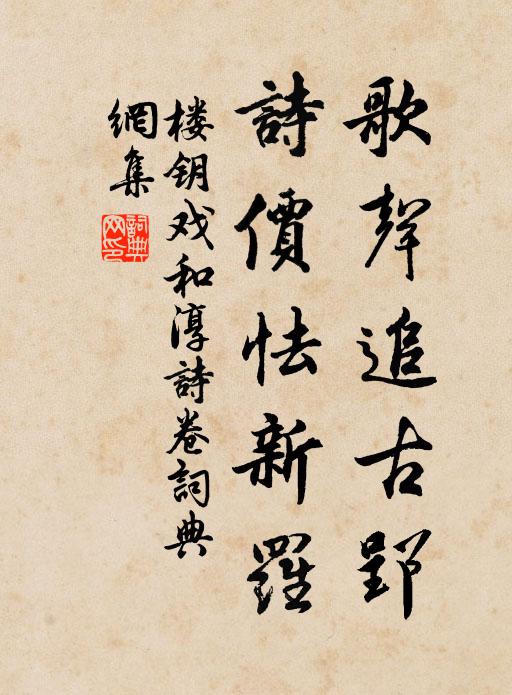 歌聲追古郢
詩價怯新羅
楼钥戏和淳詩卷詞典
網集
詞典网印